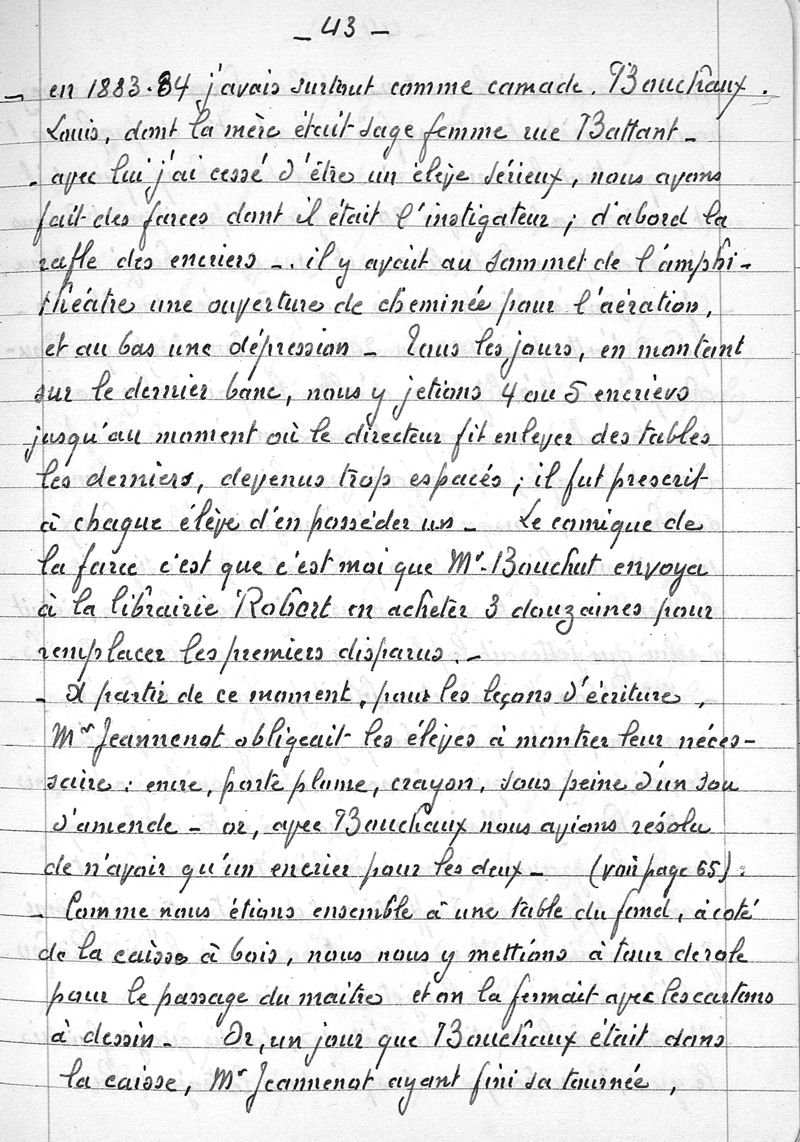 _ 43 _
_ en 1883.84 j'avais surtout comme camade. Bouchaux.
Louis, dont la mère était sage femme rue Battant _
. avec lui j'ai cessé d'être un élève sérieux, nous avons
fait des farces dont il était l'instigateur ; d'abord la
rafle des encriers _.. il y avait au sommet de l'amphi-
théatre une ouverture de cheminée pour l'aération,
et au bas une dépression _ Tous les jours, en montant
sur le dernier banc, nous y jetions 4 ou 5 encriers
jusqu'au moment où le directeur fit enlever des tables
les derniers, devenus trop espacés ; il fut prescrit
à chaque élève d'en posséder un _ Le comique de
la farce c'est que c'est moi que Mr. Bouchut envoya
à la librairie Robert en acheter 3 douzaines pour
remplacer les premiers disparus. _
_ A partir de ce moment, pour les leçons d'écriture,
Mr Jeannenot obligeait les élèves à montrer leur néces-
saire : encre, porte plume, crayon, sous peine d'un sou
d'amende _ or, avec Bouchaux nous avions résolu
de n'avoir qu'un encrier pour les deux _ (voir page 65) :
_ Comme nous étions ensemble à une table du fond, à coté
de la caisse à bois, nous nous y mettions à tour de role
pour le passage du maitre et on la fermait avec les cartons
à dessin _ Or, un jour que Bouchaux était dans
la caisse, Mr Jeannenot ayant fini sa tournée,